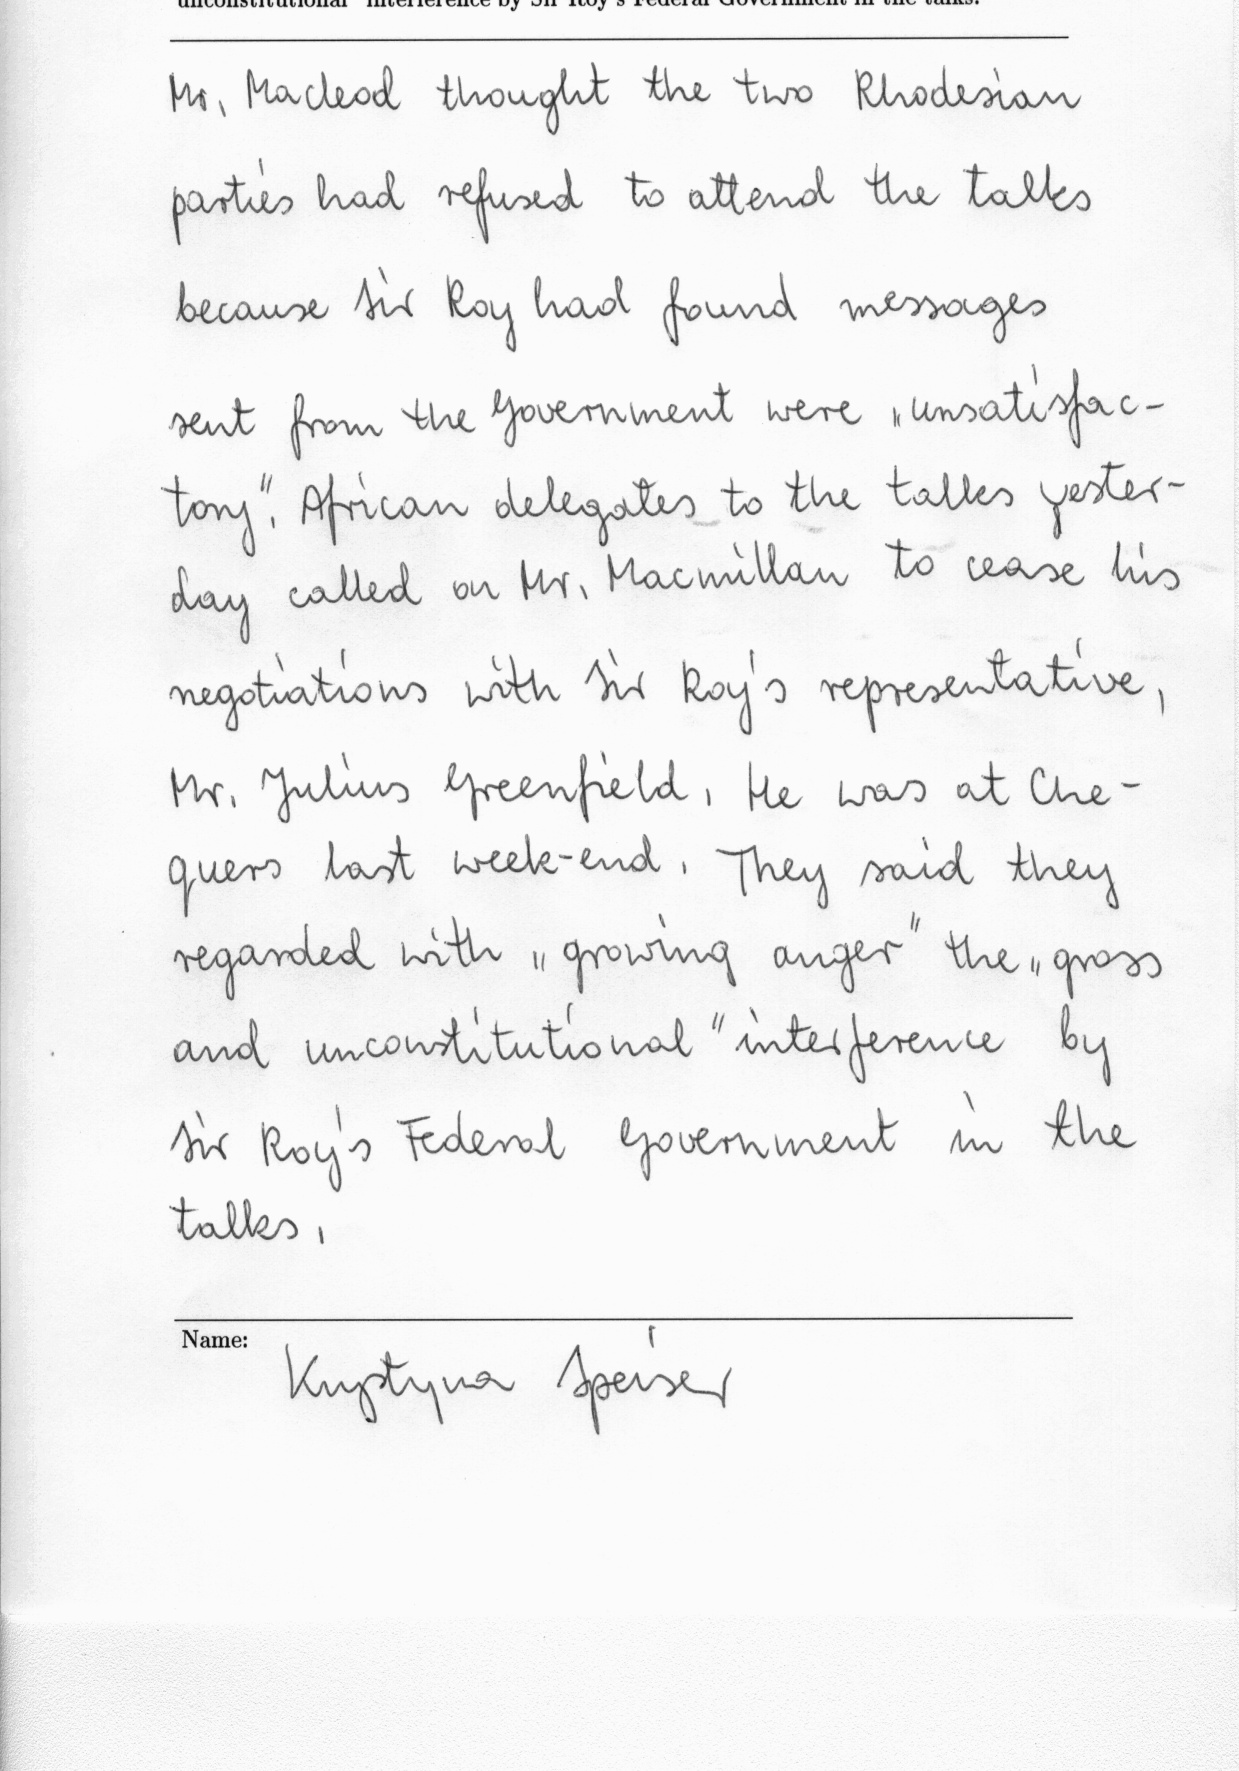 unconstitutional" interference by Sir Roy's Federal Government in the talks.
Mr. Macleod thought the two Rhodesian
parties had refused to attend the talks
because Sir Roy had found messages
sent from the Government were „unsatisfac-
tory". African delegates to the talks yester-
day called on Mr. Macmillan to cease his
negotiations with Sir Roy's representative,
Mr. Julius Greenfield. He was at Che-
quers last week-end. They said they
regarded with „growing anger" the „gross
and unconstitutional" interference by
Sir Roy's Federal Government in the
talks.
Name: Krystyna Speiser